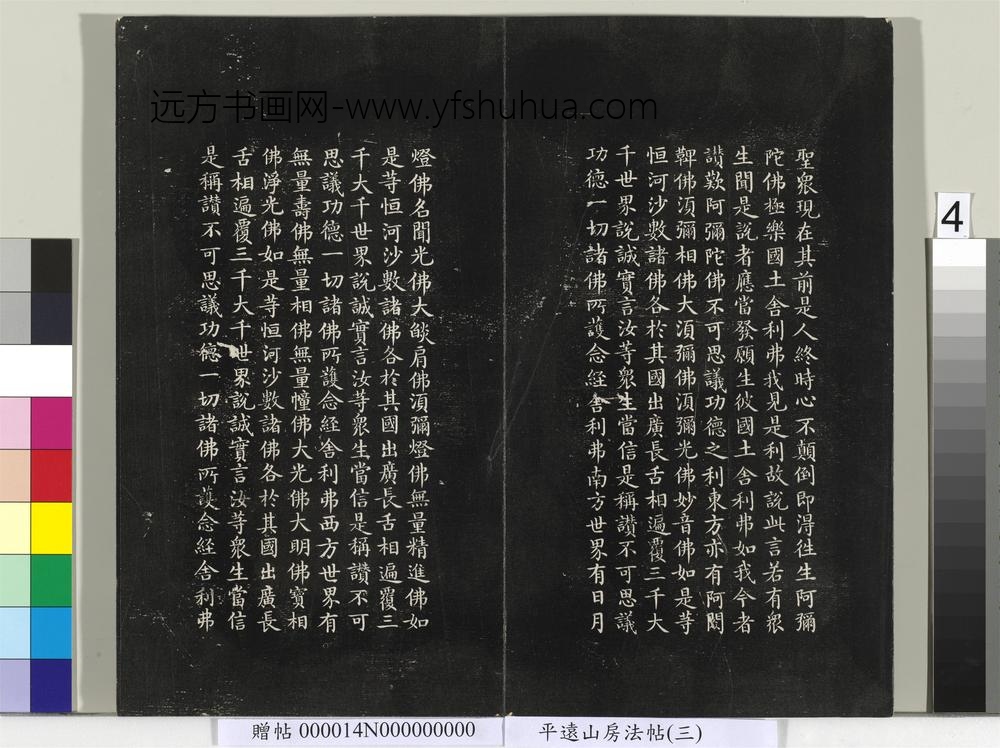 远方书画网-www.yfshuhua.com
聖衆現在其前是人終時心不顛倒即淂徃生阿彌
陀佛極樂國土舍利弗我見是利故說此言若有衆
生聞是說者應當發願生彼國土舍利弗如我今者
讃歎阿彌陀佛不可思議功德之利東方亦有阿閦
鞞佛湏彌相佛大湏彌佛湏彌光佛妙音佛如是等
恒河沙數諸佛各於其國出廣長舌相遍覆三千大
千世界說誠實言汝等衆生當信是稱讃不可思議
功德一切諸佛所護念經舍利弗南方世界有日月
燈佛名聞光佛大燄肩佛湏彌燈佛無量精進佛如
是等恒河沙數諸佛各於其國出廣長舌相遍覆三
千大千世界說誠實言汝等衆生當信是稱讃不可
思議功德一切諸佛所護念經舍利弗西方世界有
無量壽佛無量相佛無量幢佛大光佛大明佛寳相
佛淨光佛如是等恒河沙數諸佛各於其國出廣長
舌相遍覆三千大千世界說誠實言汝等衆生當信
是稱讃不可思議功德一切諸佛所護念經舍利弗
4
贈帖 000014N000000000
平遠山房法帖(三)